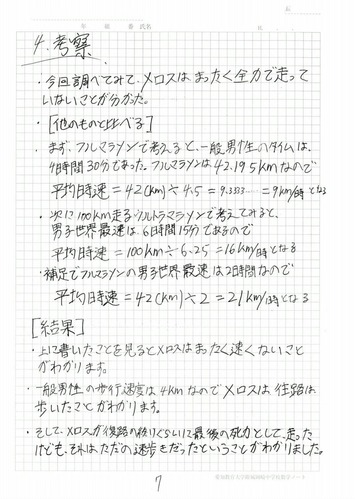 年 組 番 氏名
4. 考察
・今回調べてみて、メロスはまったく全力で走って
いないことが分かった。
・[他のものと比べる]
・まず、フルマラソンで考えると、一般男性のタイムは、
4時間30分であった。フルマラソンは42.195kmなので
平均時速=42(km)÷4.5=9.3333……=9km/時となる
・次に100km走るウルトラマラソンで考えてみると、
男子世界最速は、6時間15分であるので
平均時速=100km÷6.25=16km/時となる
・補足でフルマラソンの男子世界最速は2時間なので
平均時速=42(km)÷2=21km/時となる
[結果]
・上に書いたことを見るとメロスはまったく速くないこと
がわかります。
・一般男性の歩行速度は4kmなのでメロスは往路は
歩いたことがわかります。
・そして、メロスが復路の終りぐらいに最後の死力として、走った
けども、それはただの速歩きだったということがわかりました。
愛知教育大学附属岡崎中学校数学ノート
7